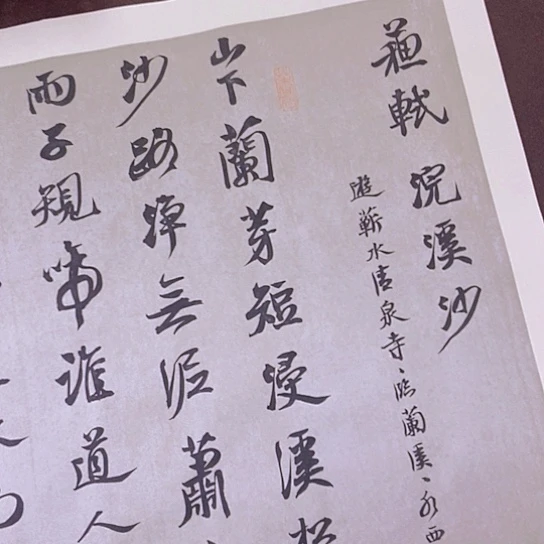 蘇軾 浣溪沙
遊蘄水清泉寺、臨蘭溪、水西
山下蘭芽短浸溪
沙路淨無泥蕭
雨子規啼誰道人